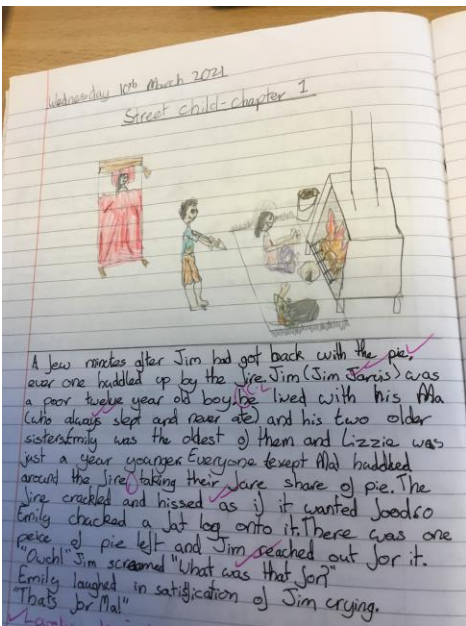 Wednesday 10th March 2021
Street child - chapter 1
A few minutes after Jim had got back with the pie,
ever one huddled up by the fire. Jim (Jim Jarvis) was
a poor twelve year old boy, he lived with his Ma
(who always slept and never ate) and his two older
sisters. Emily was the oldest of them and Lizzie was
just a year younger. Everyone (exept Ma) huddled
around the fire taking their fare share of pie. The
fire crackled and hissed as if it wanted food so
Emily chacked a fat log onto it. There was one
peice of pie left and Jim reached out for it.
"Owch!" Jim screamed "What was that for?"
Emily laughed in satisfication of Jim crying.
"Thats for Ma!"